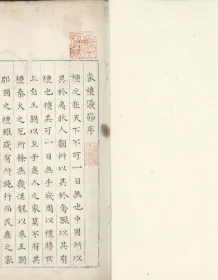 家禮儀節序
禮之在天下不可一日無也中國所以
異於夷狄人類所以異於禽獸以其有
禮也禮其可一日無乎成周以禮持世
上自王朝以至于庶人之家莫不有其
禮秦火之厄所餘無幾漢魏以來王朝
郡國之禮雖或有所施行而民庶之家